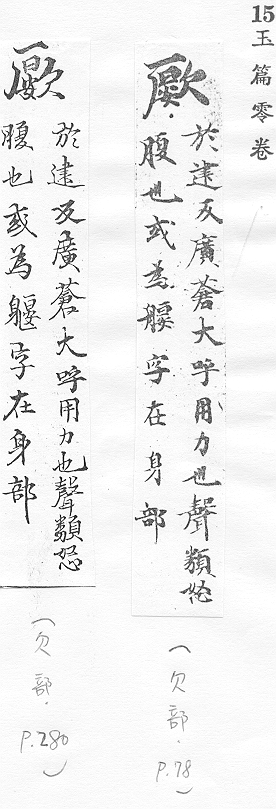 15 玉篇零卷
於建反廣蒼大呼用力也聲類怒
腹也或為字在身部
(欠部.P.78)
於建反廣蒼大呼用力也聲類怒
腹也或為躽字在身部
(欠部.P.280)